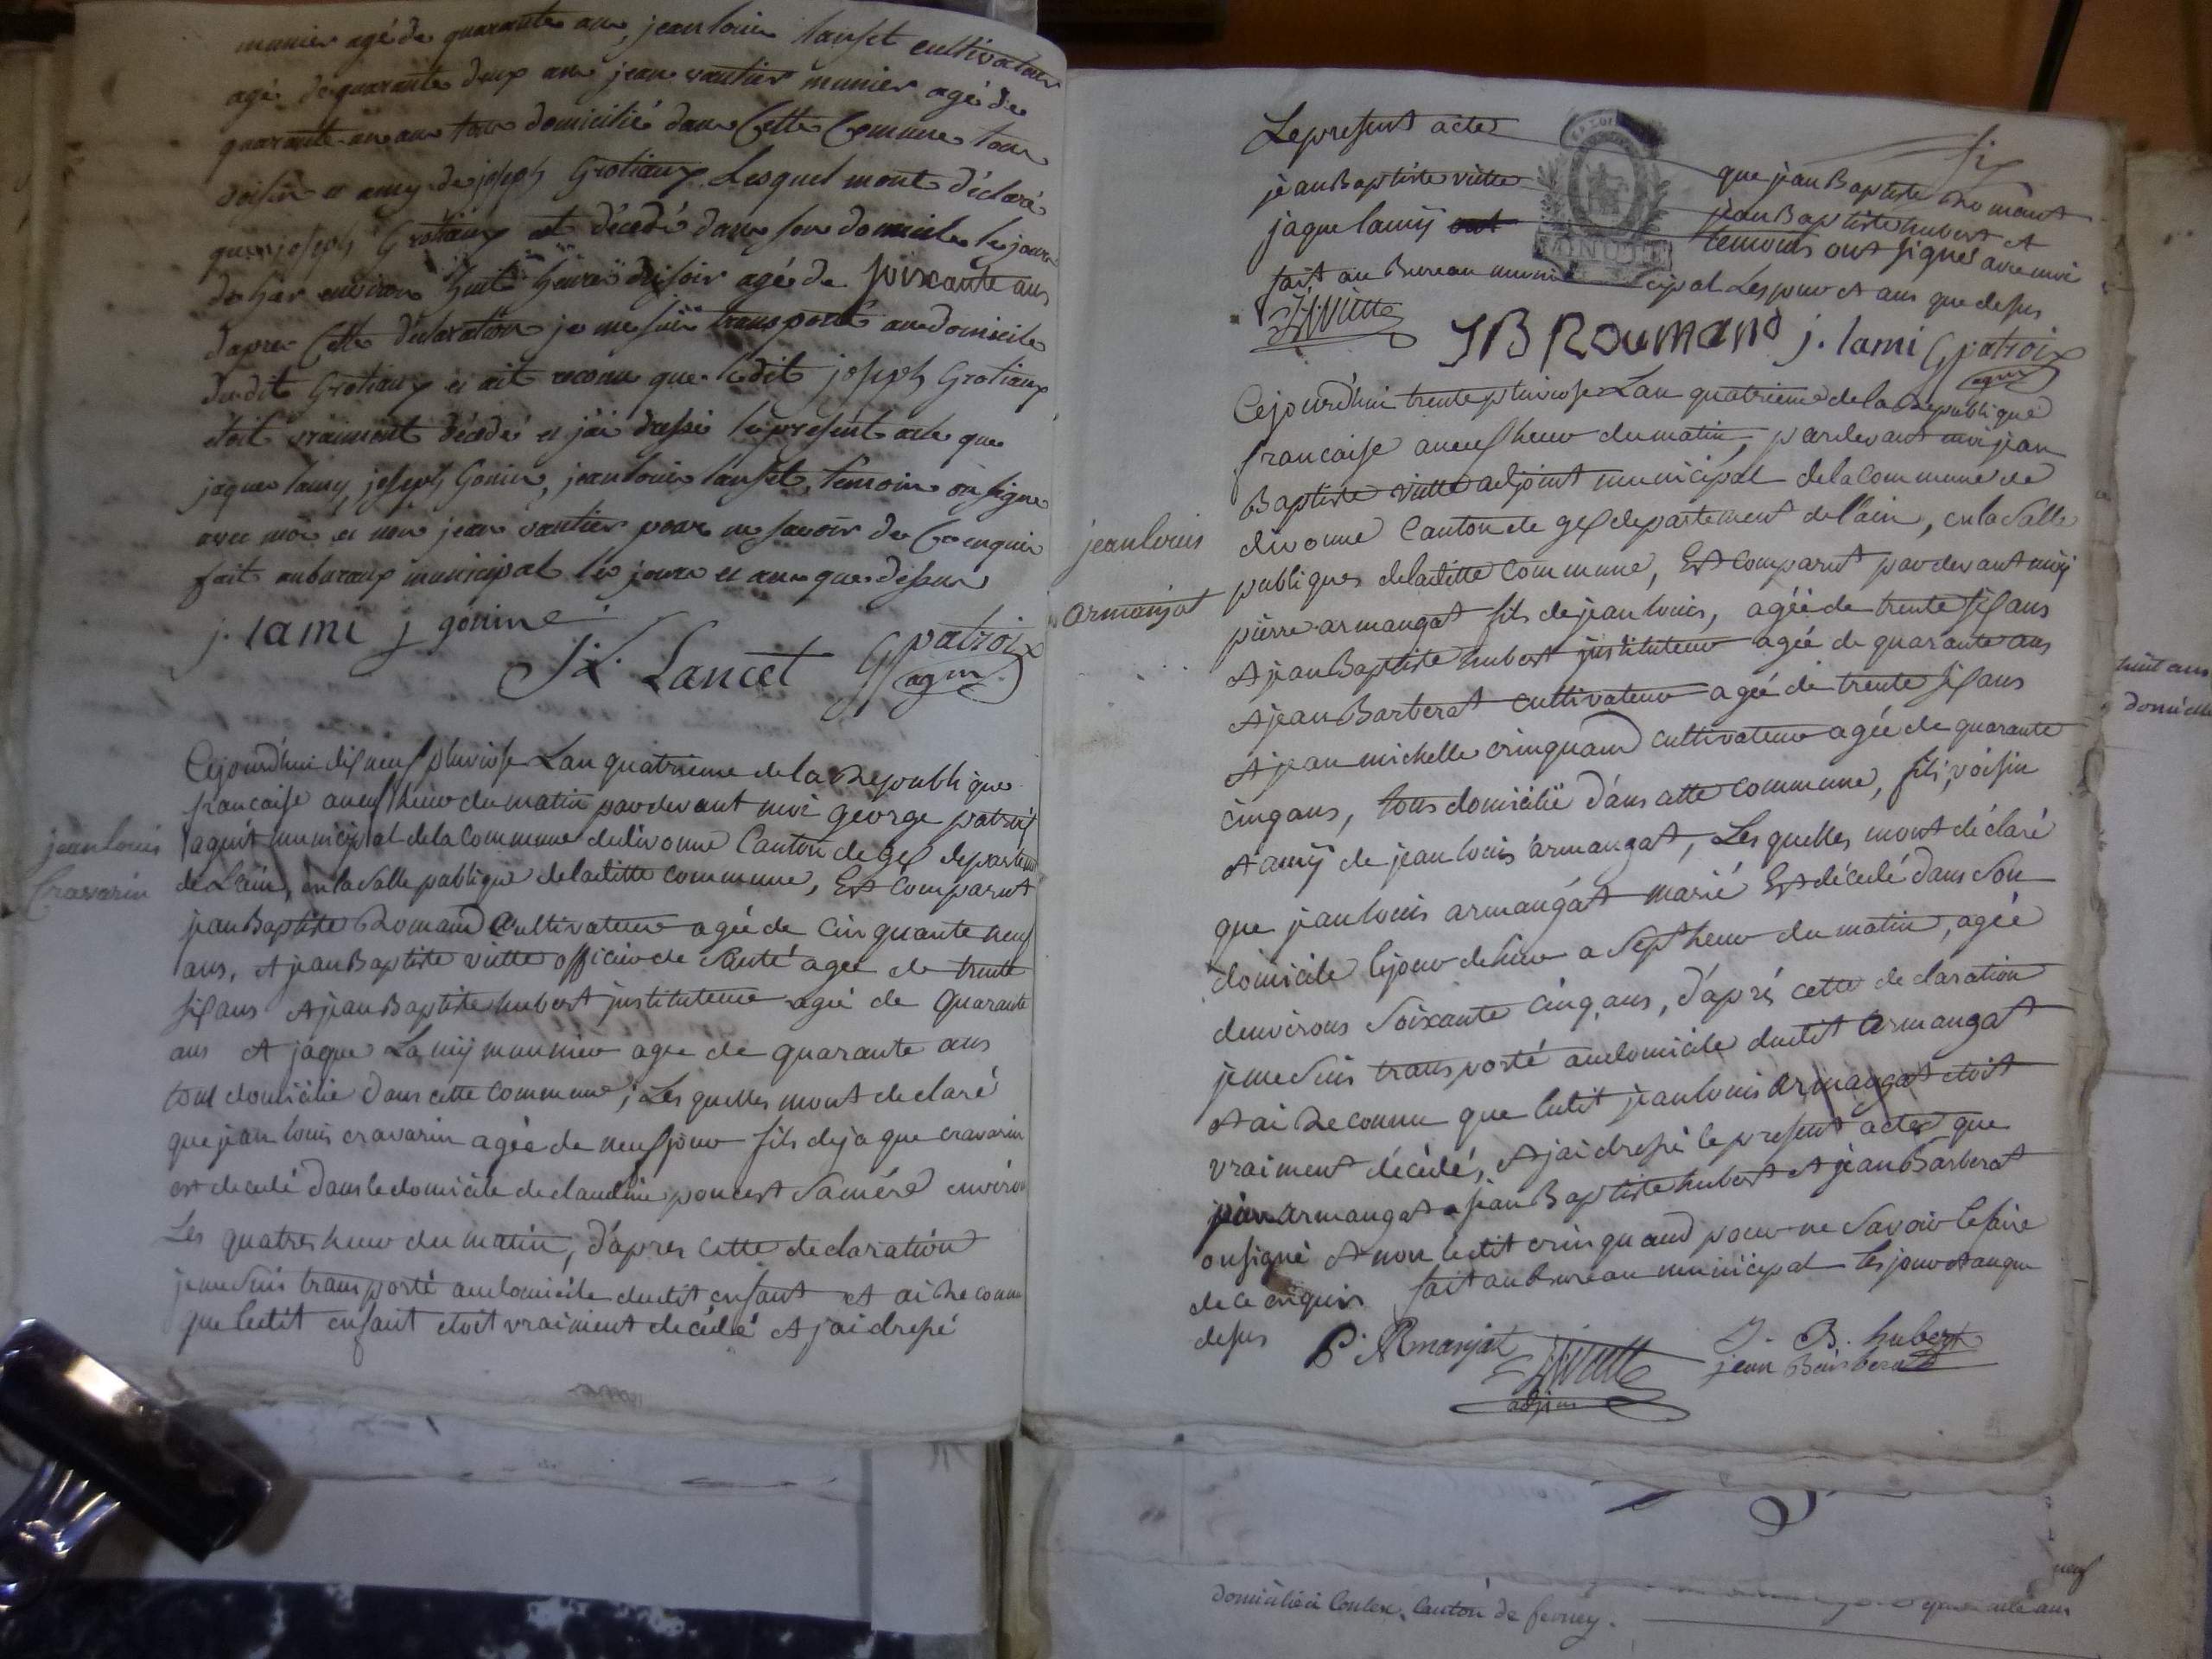 munier agé de quarante ans, jean louis lanset cultivateur
agé de quarante deux ans jean vautier munier agé de
quarante un ans tous domicilié dans Cette Comune tous
voisin et amy de joseph Grotiaux Lesquel mont déclaré
que joseph Grotiaux est décédé dans son domicile le jour
de hier environ huit heures du soir agé de soixante ans
dapres Cette déclaration je me suis transporté au domicile
dudit Grotiaux et ait reconu que ledit joseph Grotiaux
etoit vraiment décédé et jai dressé le présent acte que
jaques lamy, joseph Gonin, jean louis lanset, temoins on signe
avec moi et non jean vautier pour ne savoir de Ce enquis
fait au buraux municipal les jour et ans que dessus
j. lami j gonine
JL. Lancet G patroix
agm
jean louis
Cravarin
Cejourd'hui dix neuf pluviose Lan quatrieme de la Republique
francaise a neuf heur du matin par devant moi george patroix
agent municipal de la commune de divonne Canton de gex departement
de L'ain, en la Salle publique de laditte commune, Est Comparut
jean Baptiste Romand Cultivateur agée de Cinquante neuf
ans, et jean Baptiste viette officier de Santé agee de trente
six ans et jean Baptiste hubert justituteur agée de Quarante
ans et jaque Lamij meunier agee de quarante ans
tout domicilie dans cette commune, Les quelles mont declaré
que jean louis cravarin agée de neuf jour fils de jaque cravarin
est decedé dans le domicile de claudine poncet Sa mére environ
Les quatres heur du matin, d'apres cette declaration
je me Suis transporté au domicile dudit enfant et ai Reconnu
que ledit enfant etoit vraiment decédé et jai dressé
six
Le present acte que jean Baptiste Romant
jean Baptiste viette jean Baptiste hubert et
jaque lamij temoins ont signé avec moi
fait au Bureau municipal Les jour et ans que desus
MINUTE
JB Roumand j. lami G patroix
agm
jean louis
armanjat
Cejourd'hui trente pluviose Lan quatrieme de la Republique
francaise a neuf heur du matin, par devant moi jean
Baptiste viette adjoint municipal de la commune de
divonne Canton de gex departement de l'ain, en la Salle
publiques de laditte Commune, Est Comparut par devant moij
pierre armangat fils de jean louis, agée de trente six ans
et jean Baptiste hubert justituteur agée de quarante ans
et jean Barberat cultivateur agée de trente six ans
et jean michelle crinquand cultivateur agée de quarante
cinq ans, tous domicilié dans cette commune, fils, voisin
et amij de jean louis armangat, Les quelles mont déclaré
que jean louis armangat marié Est décédé dans Son
domicile le jour de hier a Sept heur du matin, agée
denvirons Soixante Cinq ans, d'aprés cette declaration
je me Suis transporté au domicile dudit armangat
et ai Reconnu que ledit jean louis armangat etoit
vraiment décédé, et jai dressé le present acte que
pierre armangat jean Baptiste hubert et jean Barberat
on signé et non ledit crinquand pour ne Savoir le faire
de ce enquis fait au Bureau municipal les jour et an que
desus
P. ARmanjat
J. B. hubert
jean Barberat
adjoint
huit ans
domicile
neuf
domicilié à Conlex, Canton de ferney.